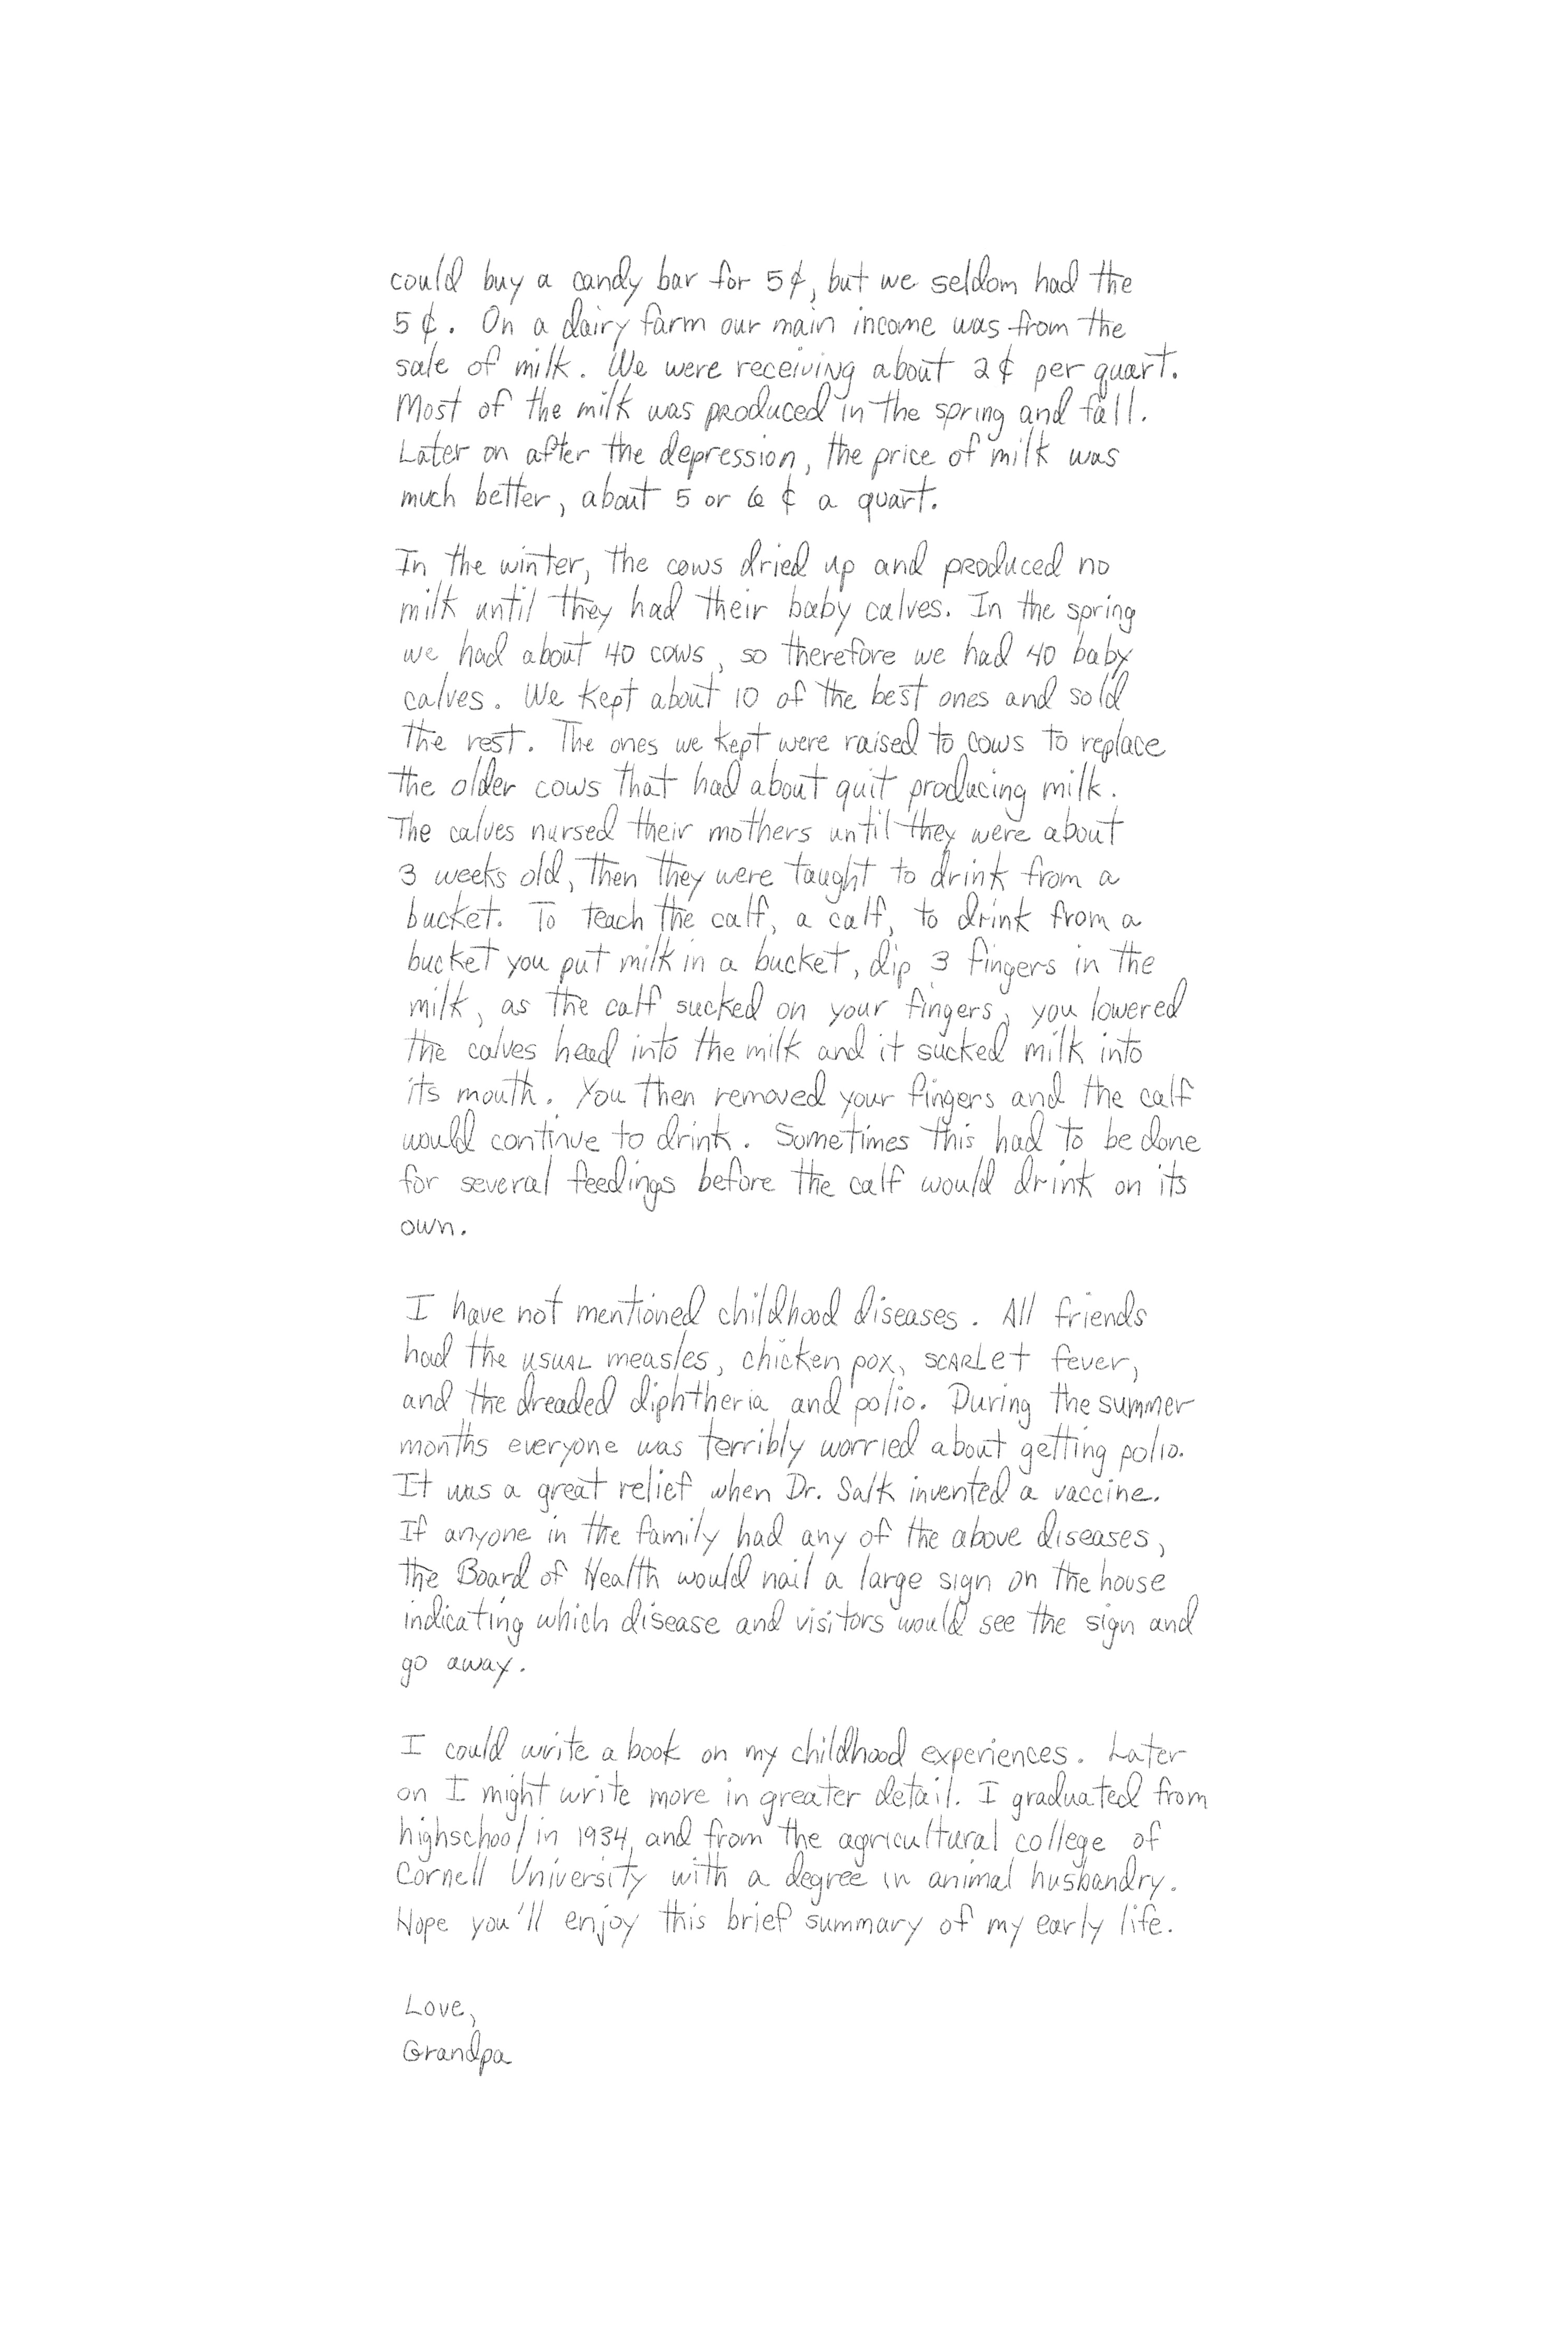 could buy a candy bar for 5¢, but we seldom had the
5¢. On a dairy farm our main income was from the
sale of milk. We were receiving about 2¢ per quart.
Most of the milk was produced in the spring and fall.
Later on after the depression, the price of milk was
much better, about 5 or 6 ¢ a quart.
In the winter, the cows dried up and produced no
milk until they had their baby calves. In the spring
we had about 40 cows, so therefore we had 40 baby
calves. We kept about 10 of the best ones and sold
the rest. The ones we kept were raised to cows to replace
the older cows that had about quit producing milk.
The calves nursed their mothers until they were about
3 weeks old, then they were taught to drink from a
bucket. To teach the calf, a calf, to drink from a
bucket you put milk in a bucket, dip 3 fingers in the
milk, as the calf sucked on your fingers, you lowered
the calves head into the milk and it sucked milk into
its mouth. You then removed your fingers and the calf
would continue to drink. Sometimes this had to be done
for several feedings before the calf would drink on its
own.
I have not mentioned childhood diseases. All friends
had the usual measles, chicken pox, scarlet fever,
and the dreaded diphtheria and polio. During the summer
months everyone was terribly worried about getting polio.
It was a great relief when Dr. Salk invented a vaccine.
If anyone in the family had any of the above diseases,
the Board of Health would nail a large sign on the house
indicating which disease and visitors would see the sign and
go away.
I could write a book on my childhood experiences. Later
on I might write more in greater detail. I graduated from
highschool in 1934, and from the agricultural college of
Cornell University with a degree in animal husbandry.
Hope you'll enjoy this brief summary of my early life.
Love,
Grandpa